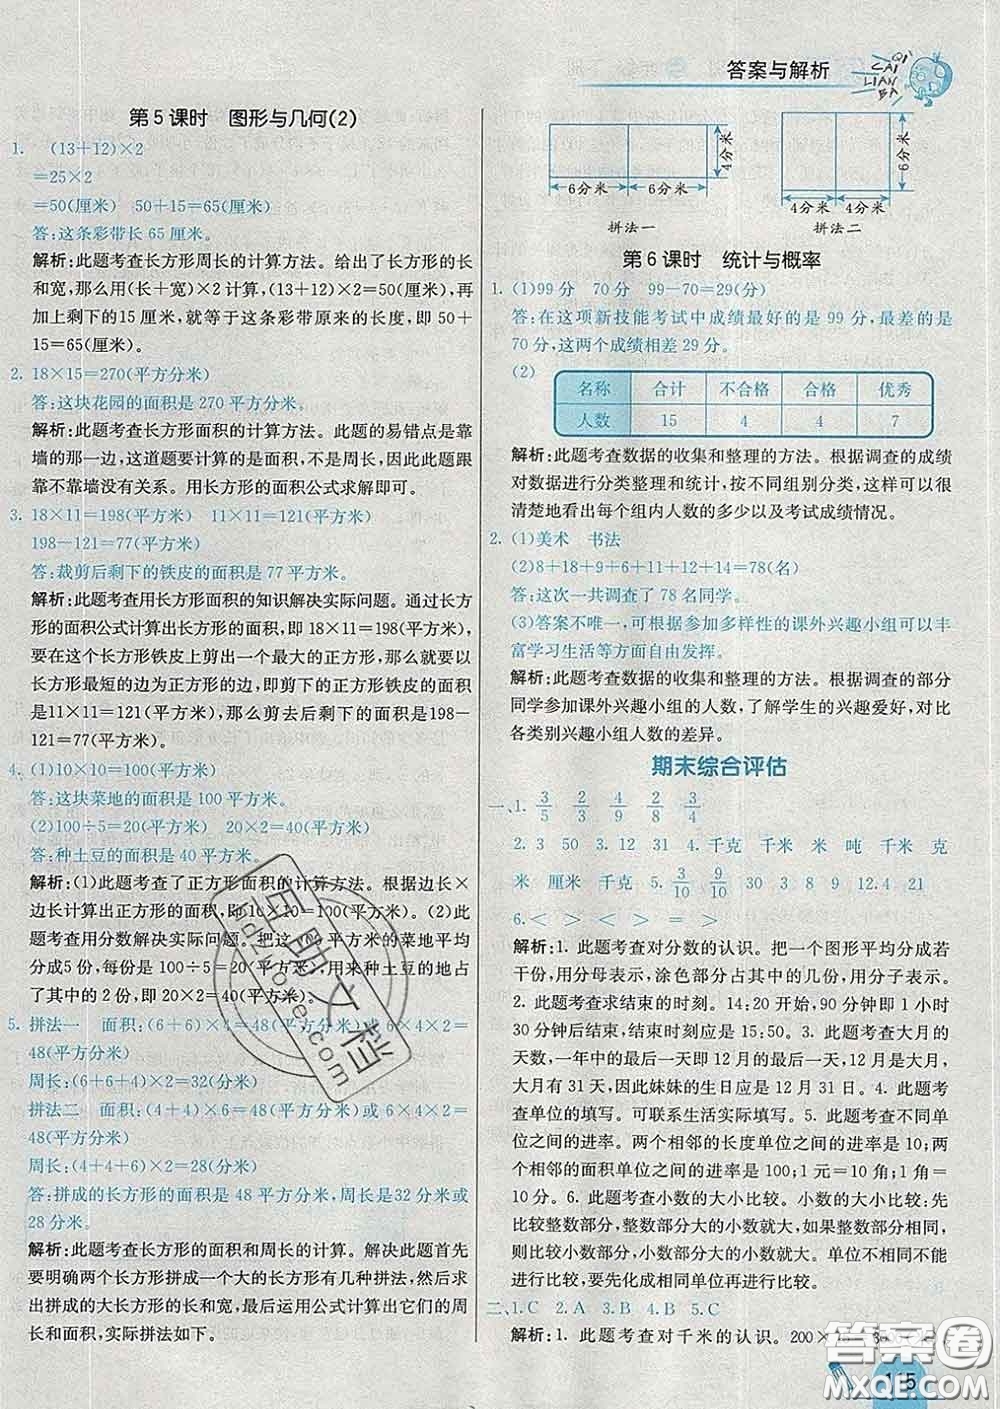 答案与解析
QI
CAI
LIAN
BA
第5课时 图形与几何(2)
1. (13+12)×2
=25×2
=50(厘米) 50+15=65(厘米)
答:这条彩带长 65 厘米。
解析:此题考查长方形周长的计算方法。给出了长方形的长
和宽,那么用(长+宽)×2 计算,(13+12)×2=50(厘米),再
加上剩下的15 厘米,就等于这条彩带原来的长度,即 50+
15=65(厘米)。
2. 18×15=270(平方分米)
答:这块花园的面积是 270 平方分米。
解析:此题考查长方形面积的计算方法。此题的易错点是靠
墙的那一边,这道题要计算的是面积,不是周长,因此此题跟
靠不靠墙没有关系。用长方形的面积公式求解即可。
3. 18×11=198(平方米) 11×11=121(平方米)
198-121=77(平方米)
答:裁剪后剩下的铁皮的面积是 77 平方米。
解析:此题考查用长方形面积的知识解决实际问题。通过长方
形的面积公式计算出长方形的面积,即 18×11=198(平方米),
要在这个长方形铁皮上剪出一个最大的正方形,那么就要以
长方形最短的边为正方形的边,即剪下的正方形铁皮的面积
是11×11=121(平方米),那么剪去后剩下的面积是198-
121=77(平方米)。
4. (1)10×10=100(平方米)
答:这块菜地的面积是 100 平方米。
(2)100÷5=20(平方米) 20×2=40(平方米)
答:种土豆的面积是 40 平方米。
解析:(1)此题考查了正方形面积的计算方法。根据边长×
边长计算出正方形的面积,即10×10=100(平方米)。(2)此
题考查用分数解决实际问题。把这100 平方米的菜地平均
分成5 份,每份是 100÷5=20(平方米),用来种土豆的地占
了其中的 2 份,即 20×2=40(平方米)。
5. 拼法一 面积:(6+6)×4=48(平方分米)或 6×4×2=
48(平方分米)
周长:(6+6+4)×2=32(分米)
拼法二 面积:(4+4)×6=48(平方分米)或 6×4×2=
48(平方分米)
周长:(4+4+6)×2=28(分米)
答:拼成的长方形的面积是 48 平方分米,周长是32 分米或
28 分米。
解析:此题考查长方形的面积和周长的计算。解决此题首先
要明确两个长方形拼成一个大的长方形有几种拼法,然后求
出拼成的大长方形的长和宽,最后运用公式计算出它们的周
长和面积,实际拼法如下。
4分米
6分米 6分米
拼法一
6分米
4分米 4分米
拼法二
第6课时 统计与概率
1. (1)99 分 70 分 99-70=29(分)
答:在这项新技能考试中成绩最好的是 99 分,最差的是
70 分,这两个成绩相差 29 分。
(2)
名称 合计 不合格 合格 优秀
人数 15 4 4 7
解析:此题考查数据的收集和整理的方法。根据调查的成绩
对数据进行分类整理和统计,按不同组别分类,这样可以很
清楚地看出每个组内人数的多少以及考试成绩情况。
2. (1)美术 书法
(2)8+18+9+6+11+12+14=78(名)
答:这次一共调查了 78 名同学。
(3)答案不唯一,可根据参加多样性的课外兴趣小组可以丰
富学习生活等方面自由发挥。
解析:此题考查数据的收集和整理的方法。根据调查的部分
同学参加课外兴趣小组的人数,了解学生的兴趣爱好,对比
各类别兴趣小组人数的差异。
期末综合评估
一、1. 3/5 2/3 4/9 2/8 3/4
2. 3 50 3. 12 31 4. 千克 千米 米 吨 千米 克
米 厘米 千克 5. 3/10 9/10 30 3 8 9 12.4 21
6. < > < = > >
解析:1. 此题考查对分数的认识。把一个图形平均分成若
干份,用分母表示,涂色部分占其中的几份,用分子表示。
2. 此题考查求结束的时刻。14:20 开始,90 分钟即 1 小时
30 分钟后结束,结束时刻应是 15:50。3. 此题考查大月的
天数,一年中的最后一天即 12 月的最后一天,12 月是大月,
大月有31 天,因此妹妹的生日应是 12 月 31 日。4. 此题考
查单位的填写。可联系生活实际填写。5. 此题考查不同单
位之间的进率。两个相邻的长度单位之间的进率是 10;两
个相邻的面积单位之间的进率是 100;1 元=10 角;1 角=
10 分。6. 此题考查小数的大小比较。小数的大小比较:先
比较整数部分,整数部分大的小数就大,如果整数部分相同,
则比较小数部分,小数部分大的小数就大。单位不同不能
进行比较,要先化成相同单位再进行比较。
二、1.C 2.A 3.B 4.B 5.C
解析:1. 此题考查对千米的认识。200×
115
答案圈
MXQE.COM